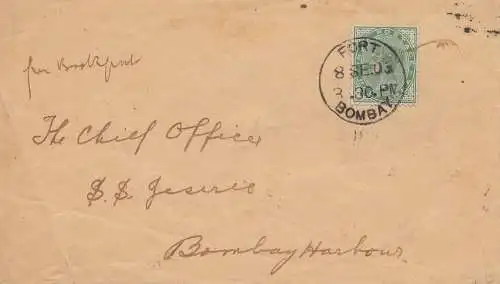 FORT
8 SE.03
3.30.PM
BOMBAY
The Chief Officer
S. S. Jeseric
Bombay Harbour